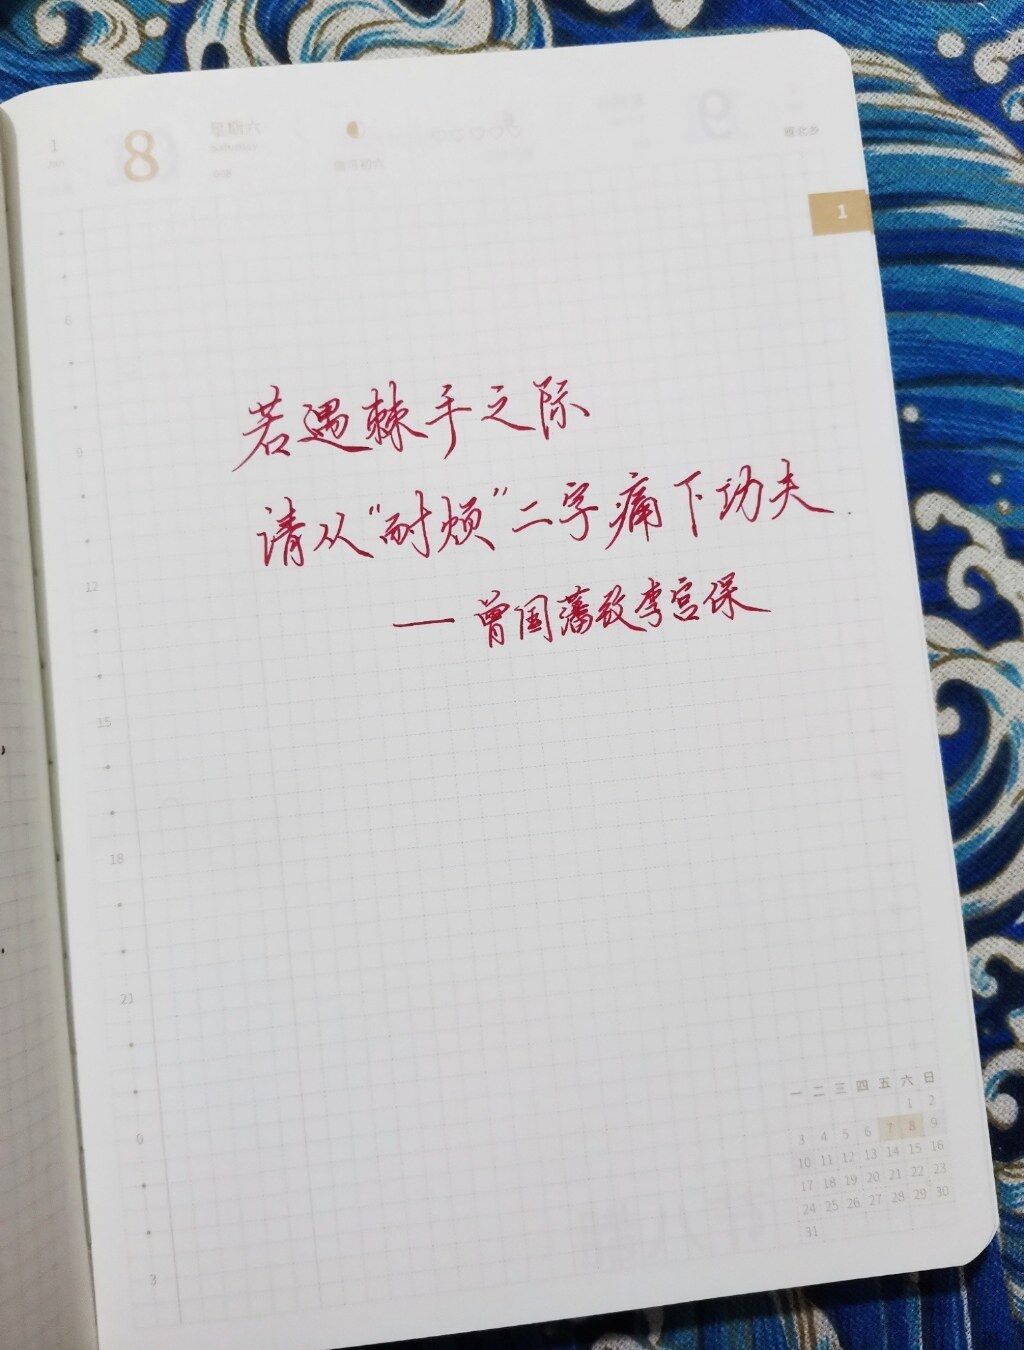 1
Jan
8
星期六
Saturday
008
腊月初六
雁北乡
1
6
9
12
15
18
21
0
3
若遇棘手之际
请从“耐烦”二字痛下功夫.
— 曾国藩致李宫保
一 二 三 四 五 六 日
1 2
3 4 5 6 7 8 9
10 11 12 13 14 15 16
17 18 19 20 21 22 23
24 25 26 27 28 29 30
31